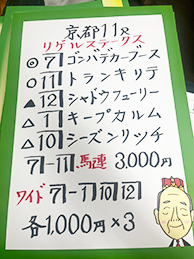 京都11R
リゲルステークス
◎7 ゴンバデカーブース
○11 トランキリテ
▲12 シャドウフューリー
△1 キープカルム
△10 シーズンリッチ
7-11 馬連 3,000円
ワイド 7-11 10 12
各1,000円×3